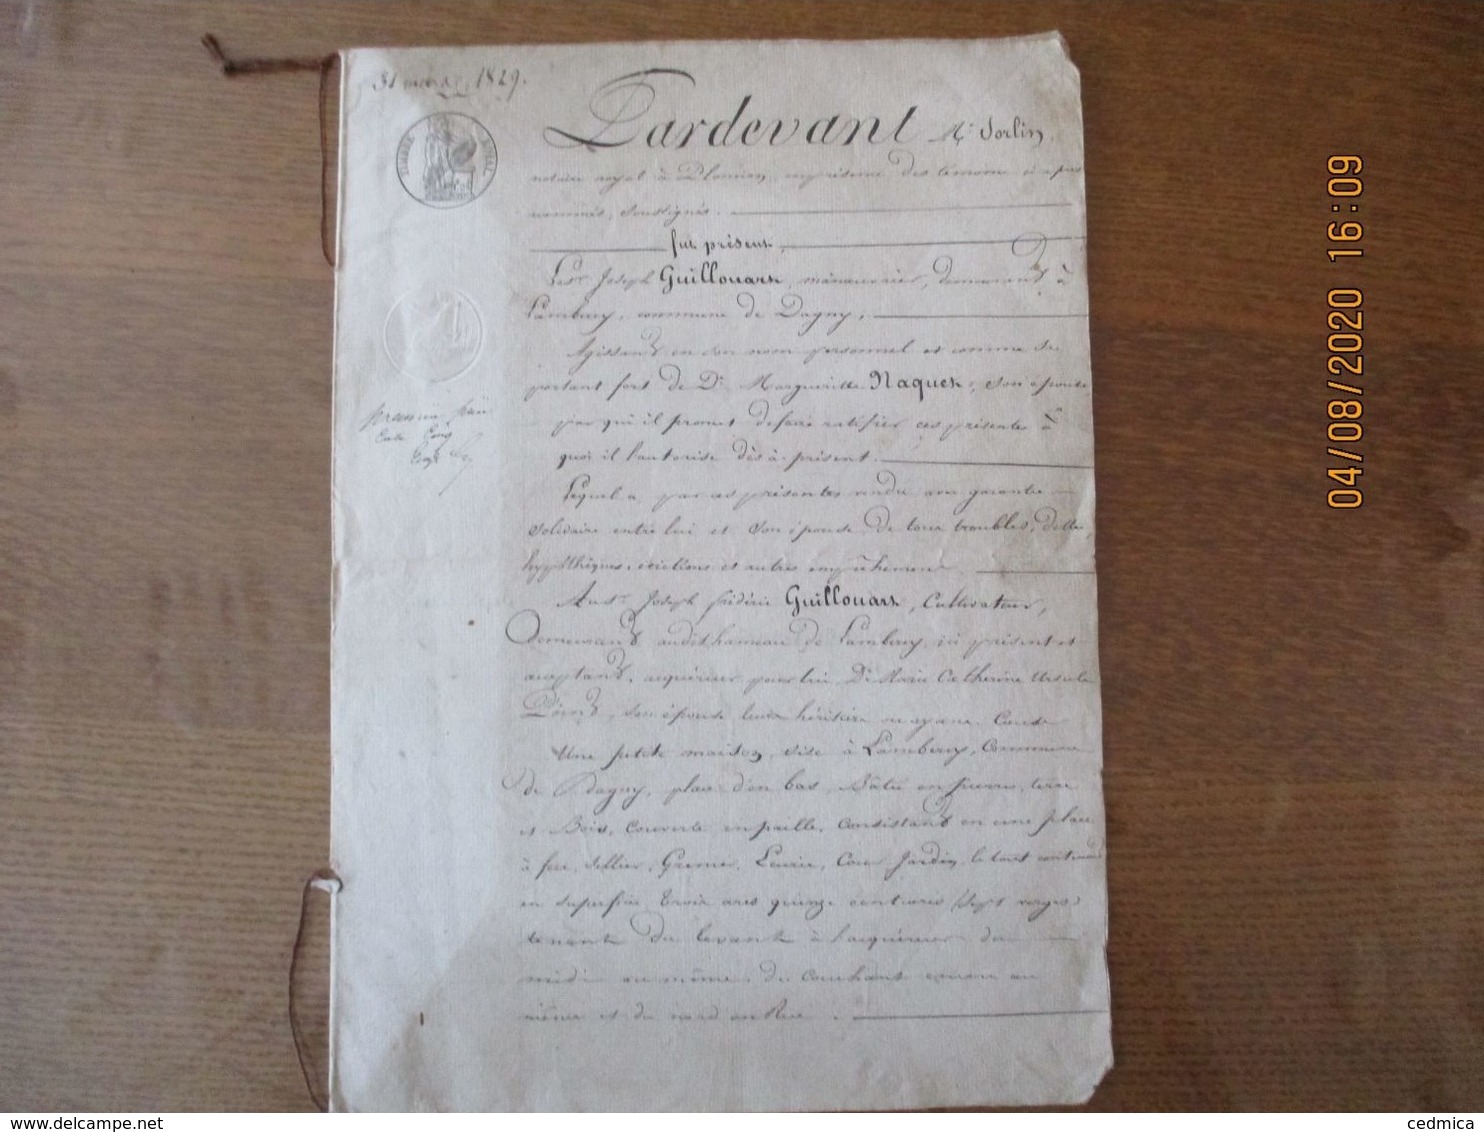 31 mars 1829.
Pardevant Me Sorlin,
notaire royal à Plomion, en présence des témoins ci après
nommés, soussignés.
fut présent,
Le sr. Joseph Guillouart, manouvrier, demeurant à
Lambercy, commune de Dagny,
Agissant en son nom personnel et comme se
portant fort de De Marguerite Naquet, son épouse,
par qui il promet de faire ratifier ces présentes à
quoi il l'autorise dès à présent.
Lequel a, par ces présentes vendu avec garantie
solidaire entre lui et son épouse de tous troubles, dettes,
hypothèques, évictions et autres empêchemens
Au sr. Joseph frédéric Guillouart, Cultivateur,
demeurant audit hameau de Lambercy, ici présent et
acceptant, acquéreur pour lui, De Marie Catherine Ursule
son épouse leurs héritiers ou ayans Cause
Une petite maison, sise à Lambercy, Commune
de Dagny, place d'en bas, Bâtie en pierres, terre
et Bois, couverte en paille, Consistant en une place
à feu, Sellier, Grenier, Ecurie, Cour, Jardin, le tout contenant
en superficie trois ares quinze centiares (sept verges)
tenant du levant à l'acquéreur du
midi au même, du couchant encore au
même et du nord au Rue.
TIMBRE ROYAL
04/08/2020 16:09
cedmica